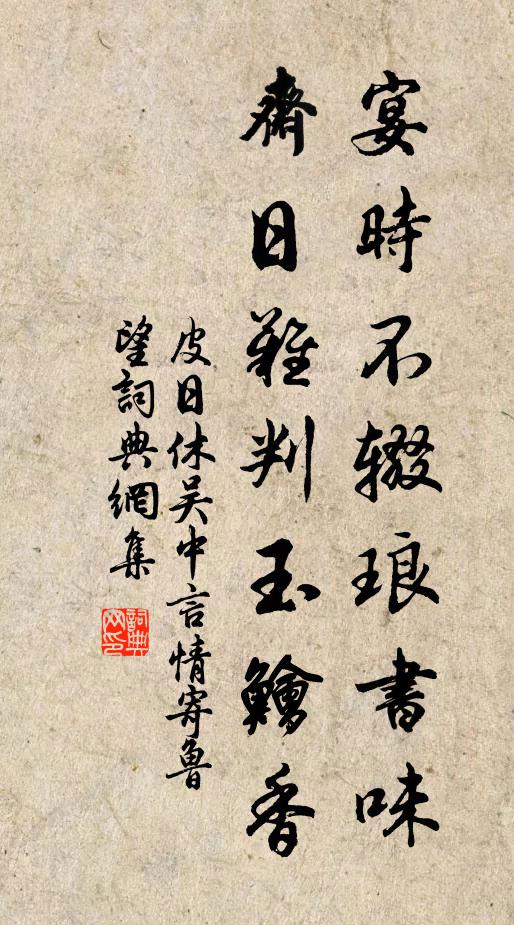 宴時不辍琅書味
齋日難判玉鱠香
皮日休吴中言情寄魯
望詞典網集
詞典
网印